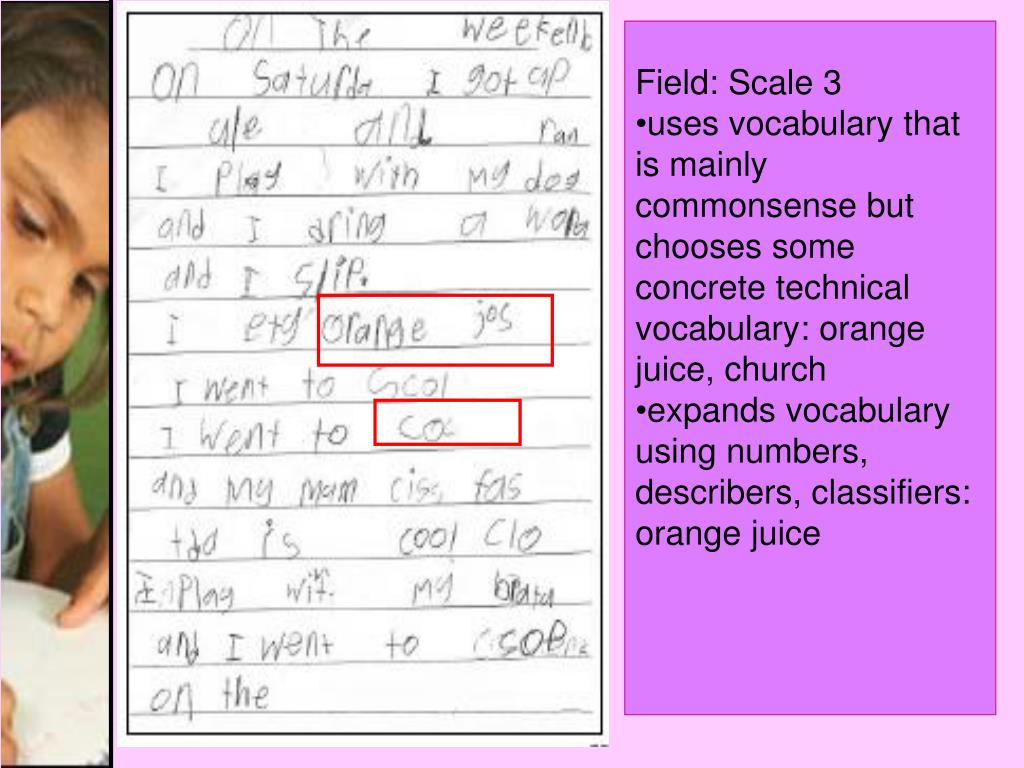 On The Weekend
on Saturda I got up
ale and ran
I Play with my dog
and I dring a wora
and I slip.
I etg orange jos
I went to Scol
I went to coc
and my mam ciss fas
tdd is cool Clo
I Play wit my brata
and I went to
on the
Field: Scale 3
•uses vocabulary that
is mainly
commonsense but
chooses some
concrete technical
vocabulary: orange
juice, church
•expands vocabulary
using numbers,
describers, classifiers:
orange juice